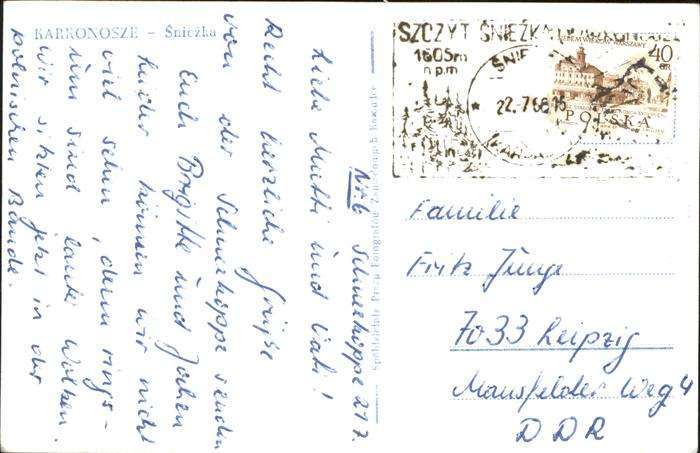 KARKONOSZE – Śnieżka
Nr 6 Schneekoppe 21.7.
Liebe Mutti und Vati!
Recht herzliche Grüße
von der Schneekoppe senden
Euch Brigitte und Jochen
Leider können wir nicht
viel sehen, denn rings-
um sind lauter Wolken.
Wir sitzen jetzt in der
polnischen Baude.
Spółdzielnia Pracy Fotografów Zawodowych
SZCZYT ŚNIEŻKA KARKONOSZE
1605m
n.p.m
22.7.68.15
40
GR
POLSKA
Familie
Fritz Junge
7033 Leipzig
Mansfelder Weg 4
DDR